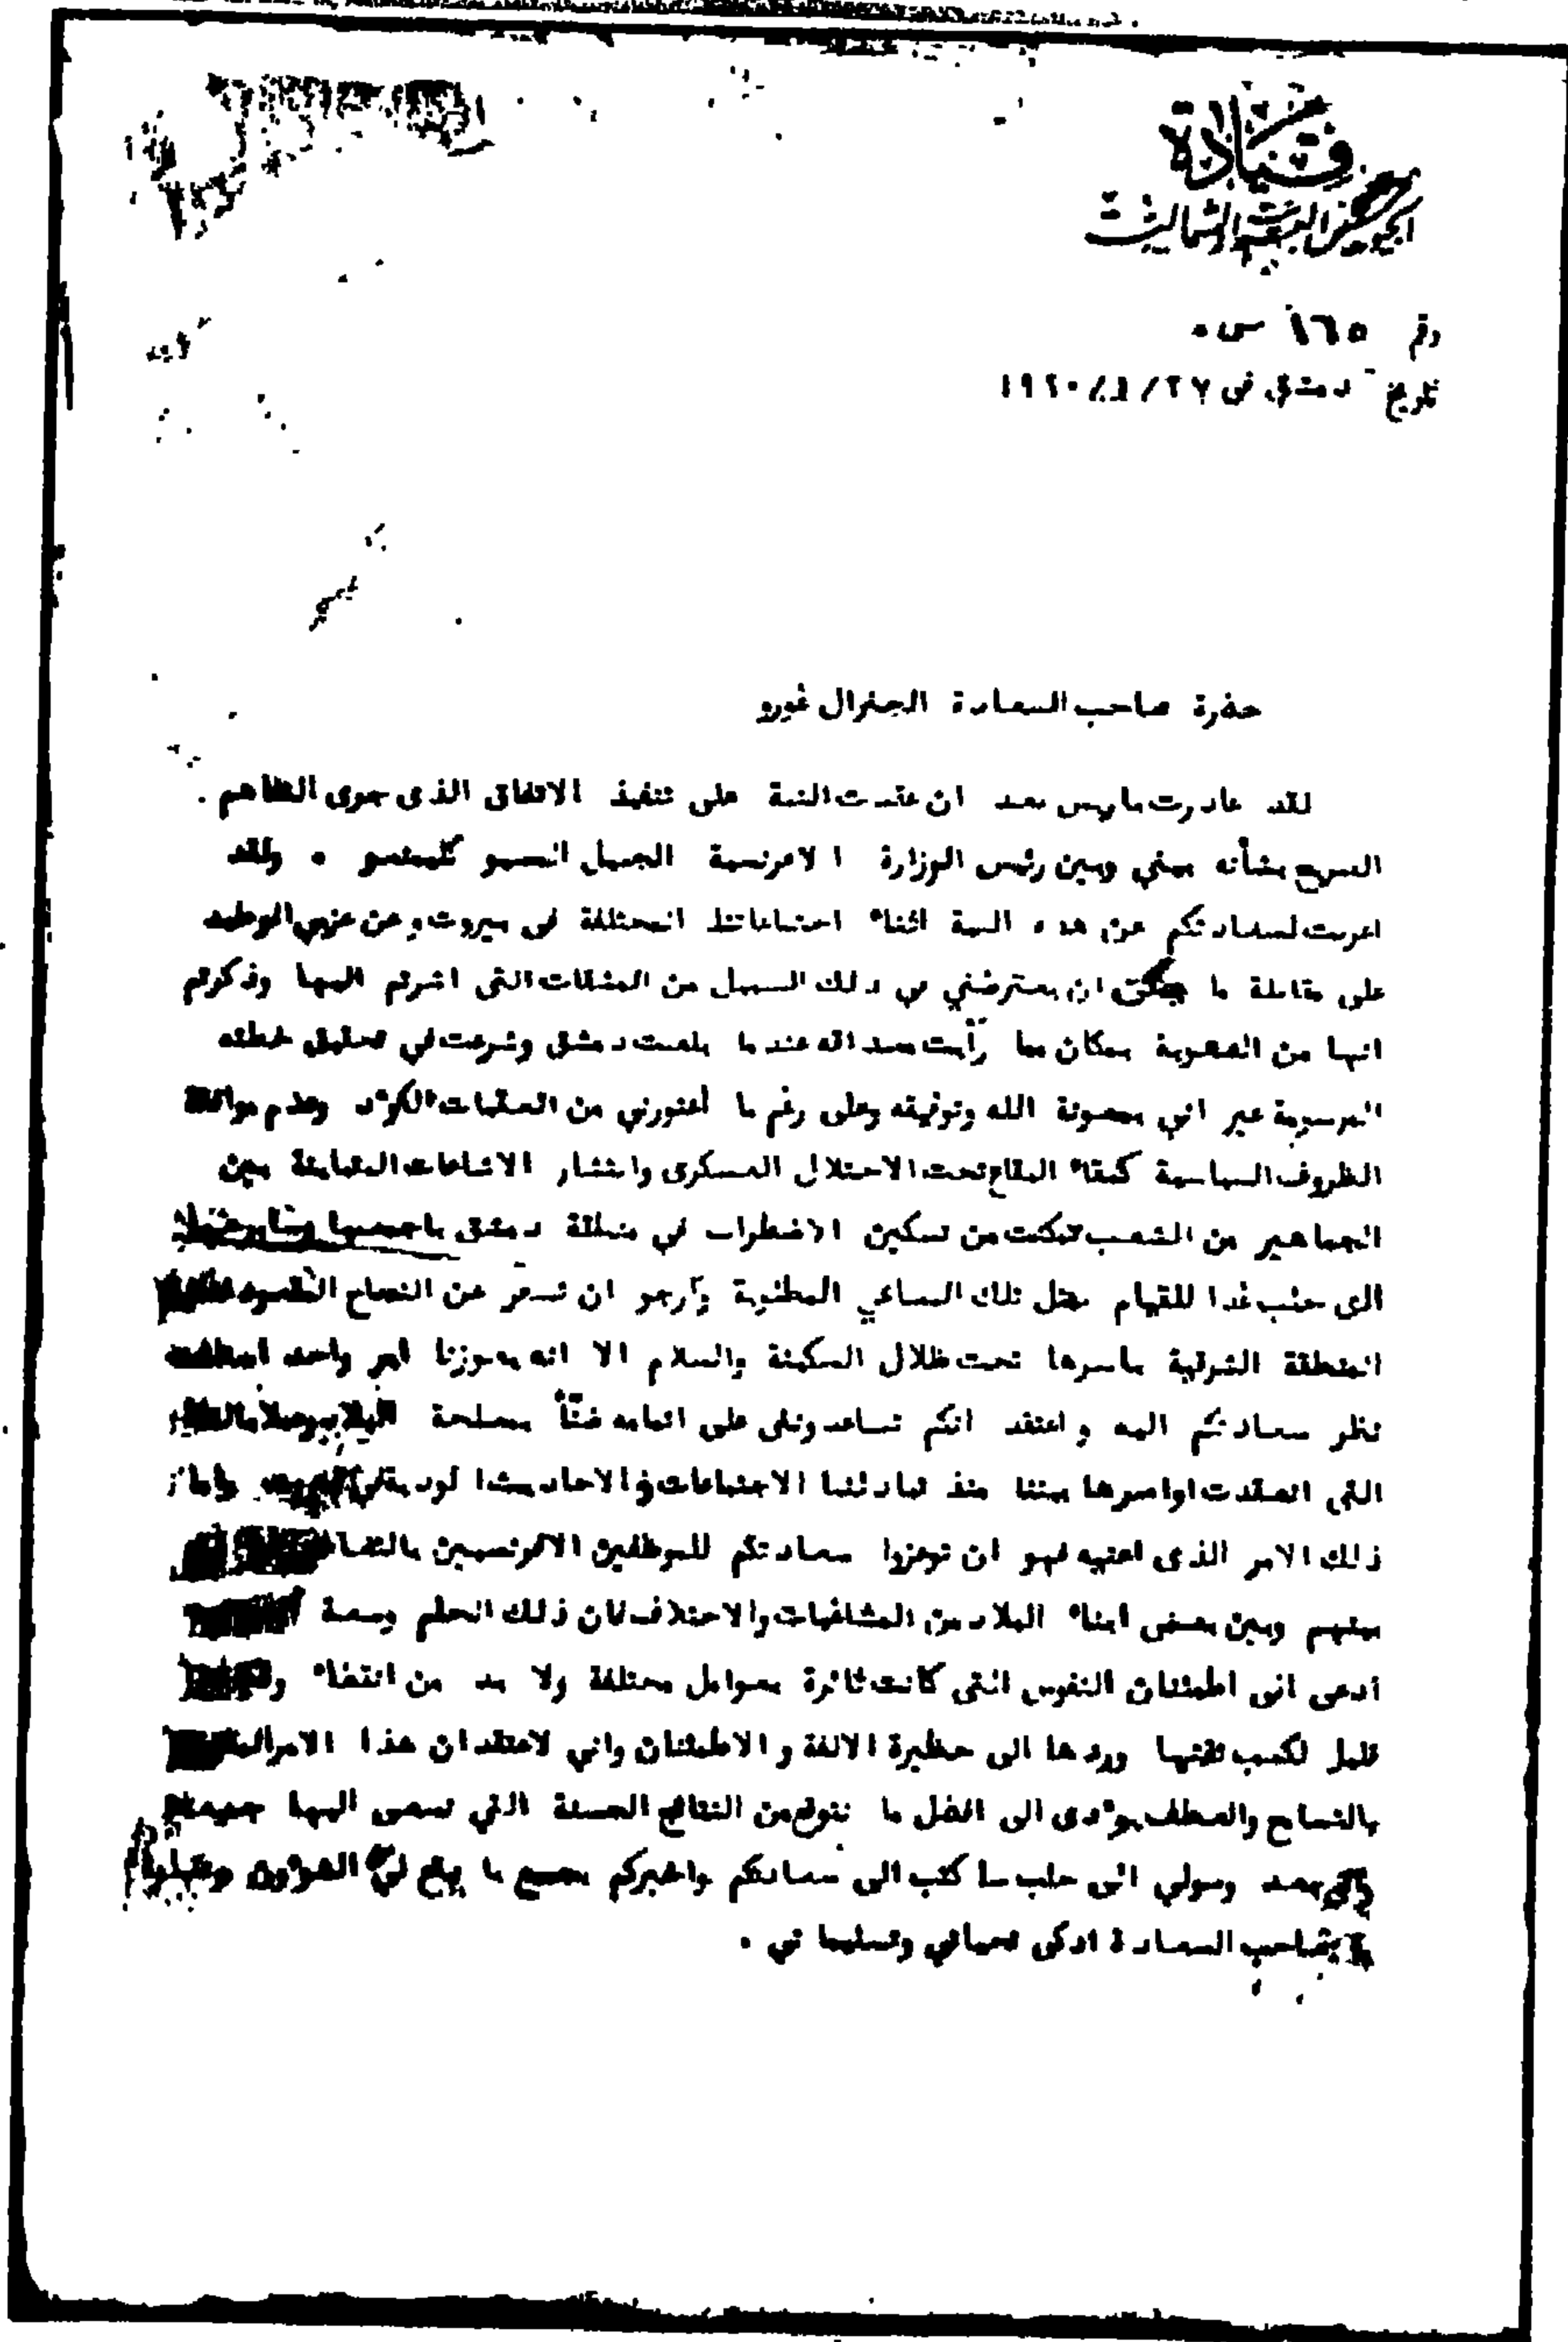 قيادة
الجيوش العربية الشمالية
رقم ١٦٥ س٠
تاريخ دمشق في ٢٧/١/١٩٢٠
حضرة صاحب السعادة الجنرال غورو
لقد غادرت باريس بعد ان عقدت النية على تنفيذ الاتفاق الذى جرى التفاهم .
الصريح بشأنه بيني وبين رئيس الوزارة الافرنسية الجليل المسيو كليمنصو ٠ ولقد
اعربت لسعادتكم عن هذه النية اثناء اجتماعاتنا المختلفة في بيروت وعن عزمي الوطيد
على مقابلة ما يمكن ان يعترضني في ذلك السبيل من المشكلات التي اشرتم اليها وذكرتم
انها من الصعوبة بمكان مما رأيت مصداقه عندما بلغت دمشق وشرعت في تحقيق خطته
المرسومة غير اني بمعونة الله وتوفيقه وعلى رغم ما أعتورني من العقبات الكؤد وعدم موافقة
الظروف السياسية كبقاء البقاع تحت الاحتلال العسكرى وانتشار الاشاعات المتباينة بين
الجماهير من الشعب تمكنت من تسكين الاضطراب في منطقة دمشق باجمعها
الى حلب غدا للقيام بمثل تلك المساعي المطلوبة وأرجو ان تسفر عن النجاح المقصود
المنطقة الشرقية باسرها تحت ظلال السكينة والسلام الا انه يعوزنا امر واحد
نظر سعادتكم اليه واعتقد انكم تساعدونني على اتمامه ضنّاً بمصلحة
التي انعقدت اواصرها بيننا منذ تبادلنا الاجتماعات والاحاديث الودية في
ذلك الامر الذى اعنيه فهو ان توعزوا سعادتكم للموظفين الافرنسيين
بينهم وبين بعض ابناء البلاد من المشاغبات والاختلاف فان ذلك الحلم وسعة
أدعى الى اطمئنان النفوس التي كانت ثائرة بعوامل مختلفة ولا بد من انقضاء
قليل لكسب ثقتها وردها الى حظيرة الالفة والاطمئنان واني لاعتقد ان هذا الامر
بالتسامح والعطف يؤدى الى افضل ما نتوقع من النتائج الحسنة التي نسعى اليها
بعد وصولي الى حلب ساكتب الى سعادتكم واخبركم بجميع ما يقع لي الشؤون
صاحب السعادة ازكى تحياتي وتسليماتي ٠